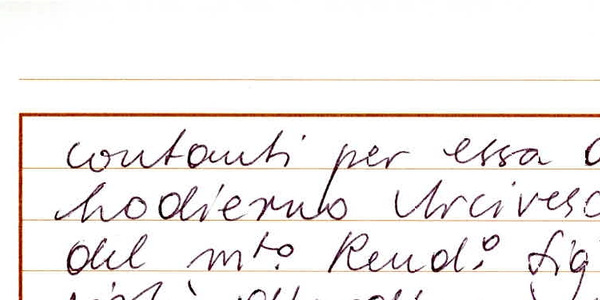 contanti per essa
hodierno Arcivesc
del m.to Rend.o sig